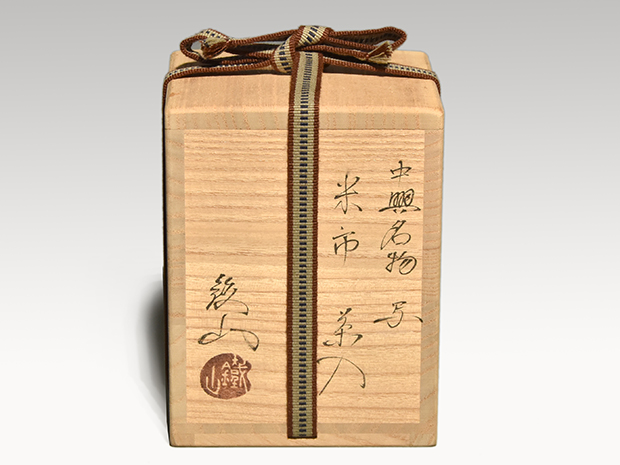 中興名物 写
米市 茶入
鉄山
鐵山